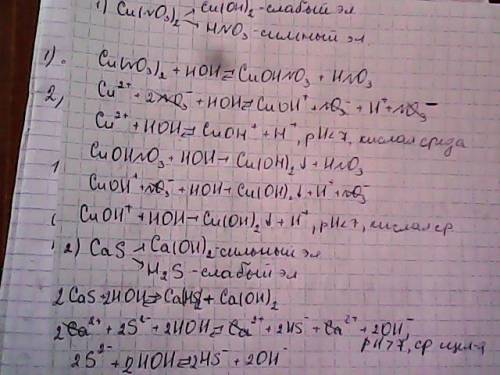 1) Cu(NO₃)₂ Cu(OH)₂ - слабый эл
HNO₃ - сильный эл
1). Cu(NO₃)₂ + HOH ⇄ CuOHNO₃ + HNO₃
2, Cu²⁺ + 2NO₃⁻ + HOH ⇄ CuOH⁺ + NO₃⁻ + H⁺ + NO₃⁻
Cu²⁺ + HOH ⇄ CuOH⁺ + H⁺, pH<7, кислая среда
CuOHNO₃ + HOH → Cu(OH)₂↓ + HNO₃
CuOH⁺ + NO₃⁻ + HOH → Cu(OH)₂↓ + H⁺ + NO₃⁻
CuOH⁺ + HOH → Cu(OH)₂↓ + H⁺, pH<7, кислая ср.
2) CaS Ca(OH)₂ - сильный эл
H₂S - слабый эл
2CaS + 2HOH ⇄ Ca(HS)₂ + Ca(OH)₂
2Ca²⁺ + 2S²⁻ + 2HOH ⇄ Ca²⁺ + 2HS⁻ + Ca²⁺ + 2OH⁻,
pH>7, ср щел-я
2S²⁻ + 2HOH ⇄ 2HS⁻ + 2OH⁻